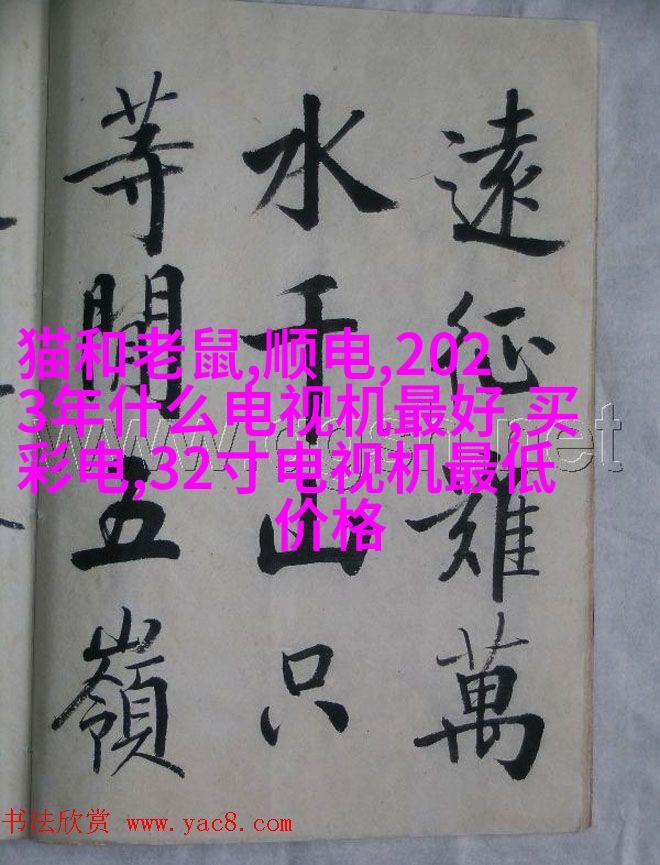 遠征難萬
水千山只
等閒五嶺
猫和老鼠,顺电,202
3年什么电视机最好,买
彩电,32寸电视机最低
价格
书法欣赏 www.yac8.com